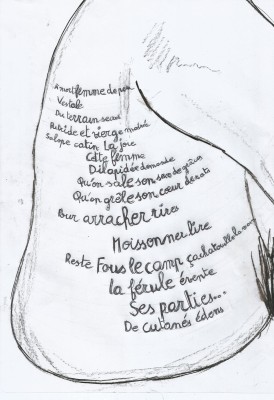 A mort! femme de peu
Vestale
Du terrain secret
Putride et vierge mobile
Salope catin la joie
Cette femme
Dilapidée demande
Qu'on sale son sexe de grâces
Qu'on grêle son cœur de rats
Pour arracher rires
Moissonner l'ire
Reste Fous le camp ça chatouille là
la férule évente
Ses parties...
De cutanés édens